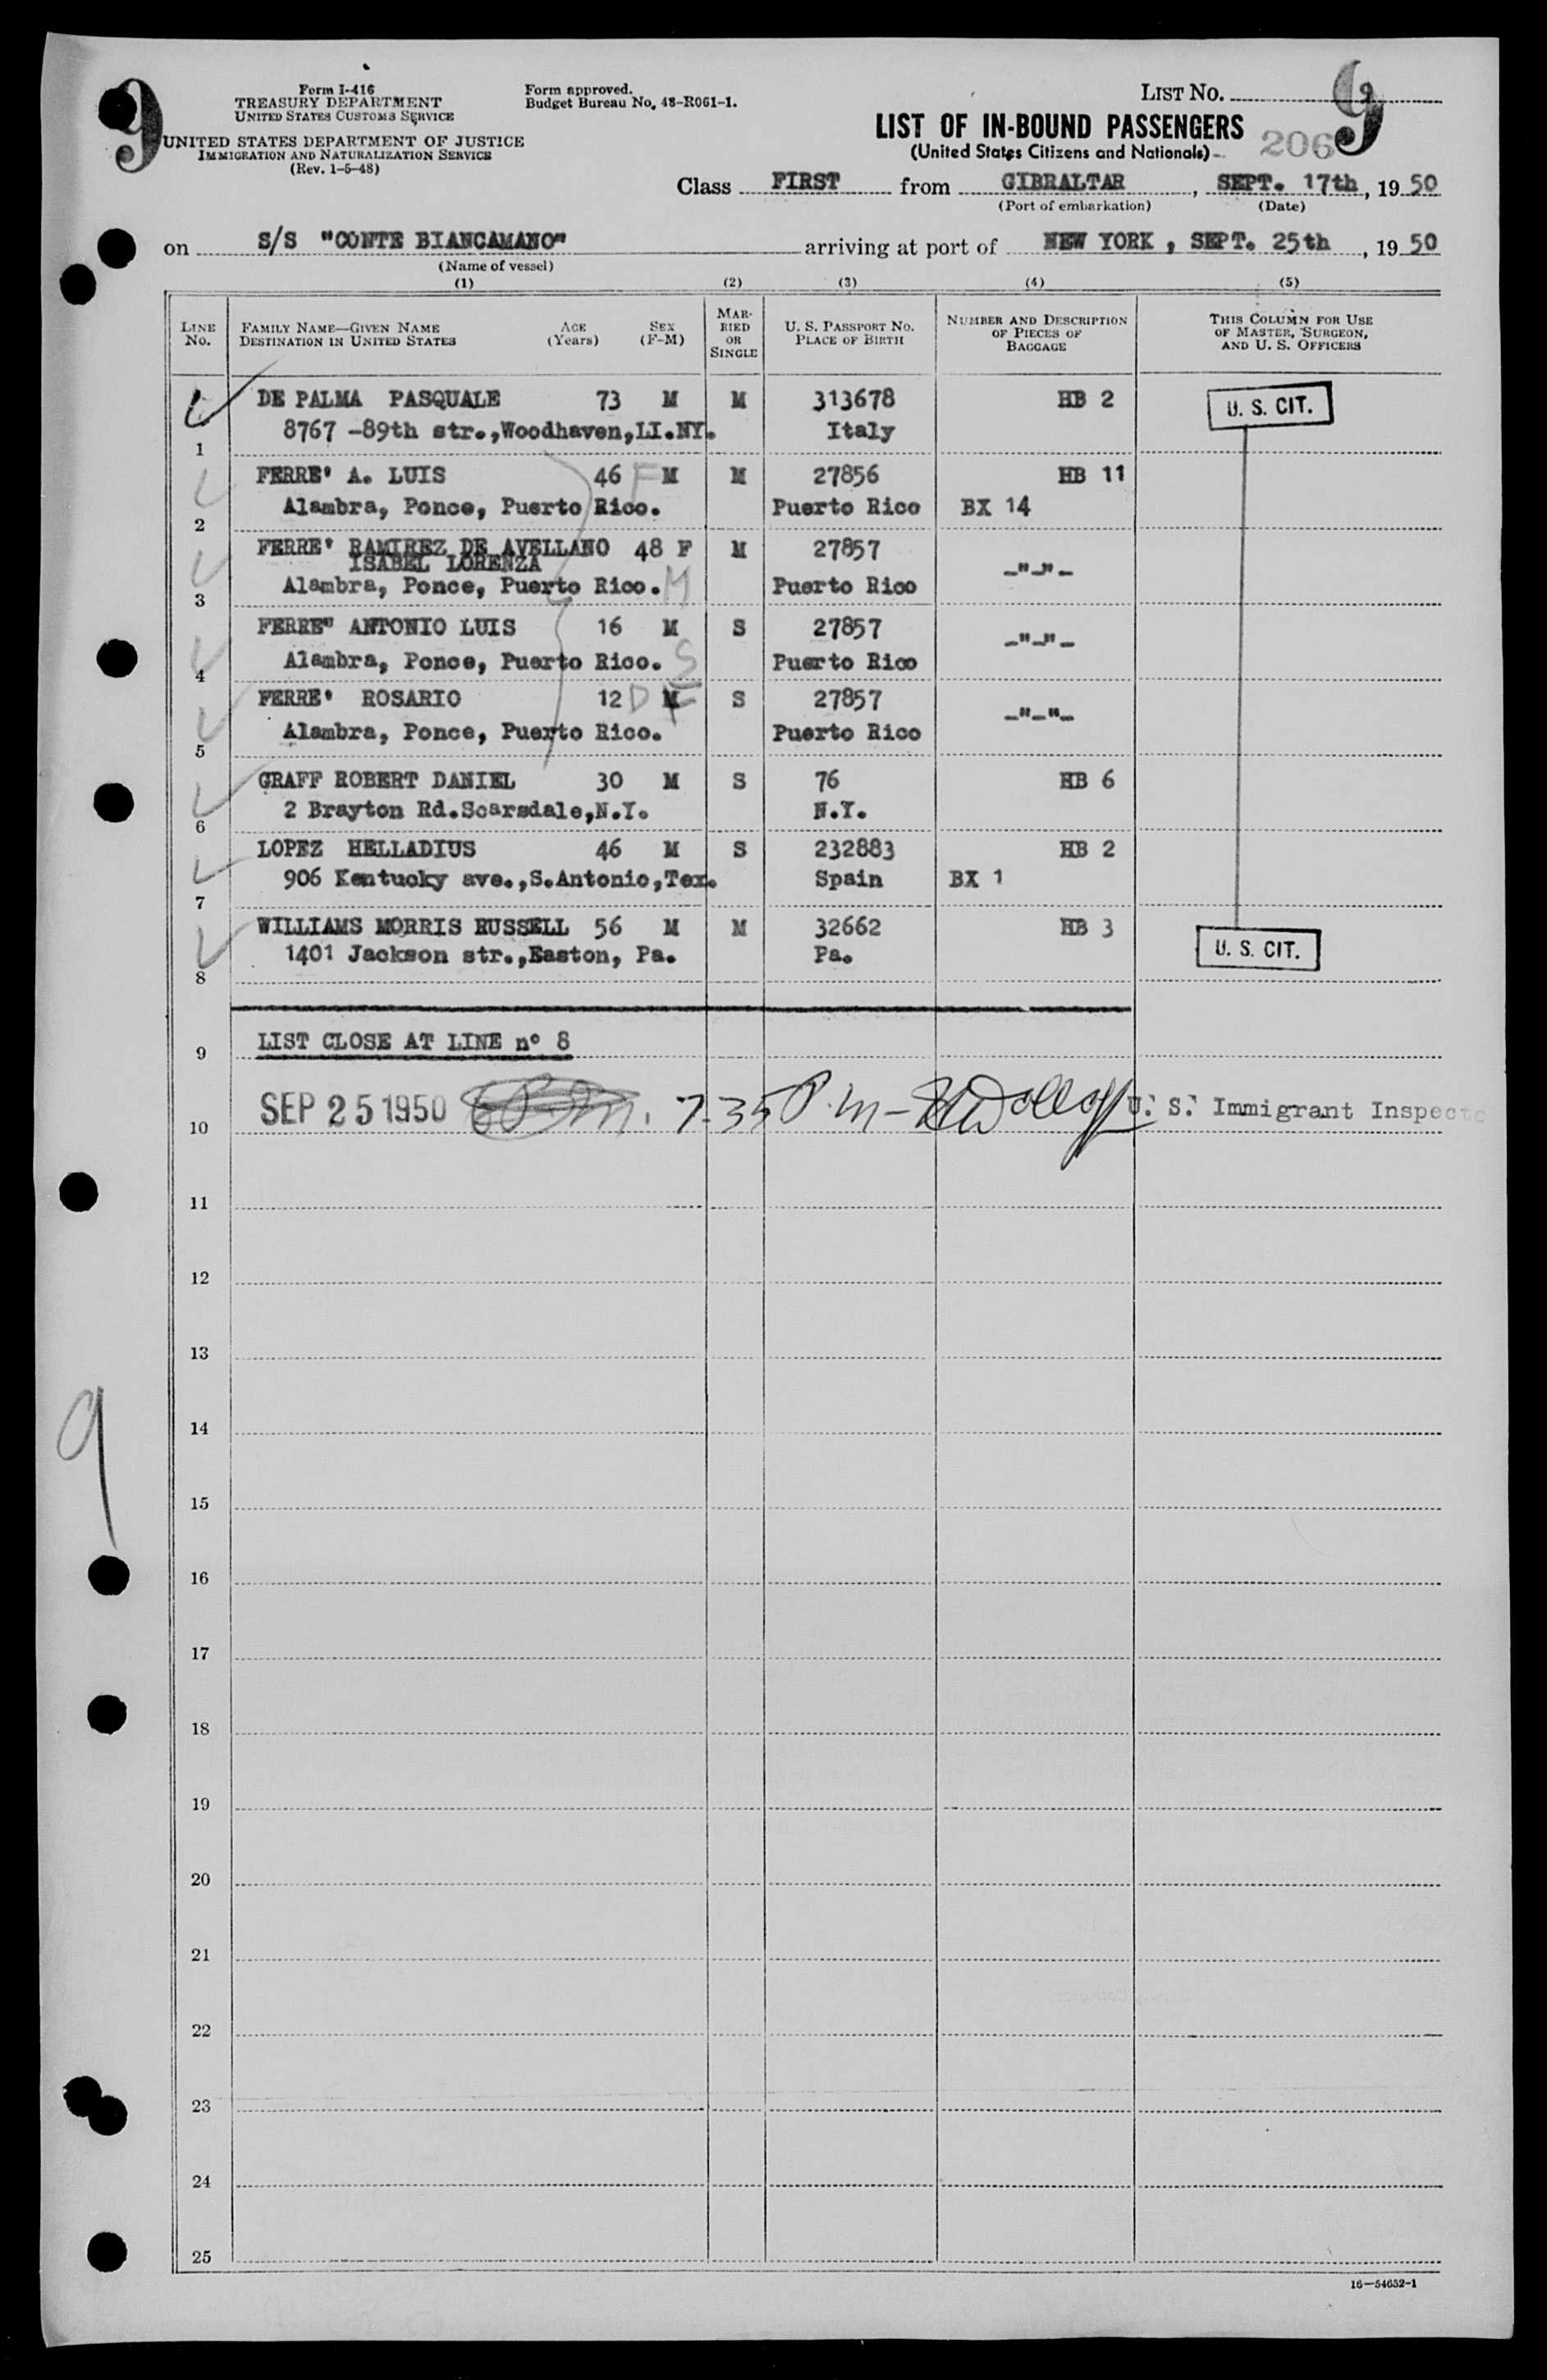 9
Form I-416
TREASURY DEPARTMENT
UNITED STATES CUSTOMS SERVICE
UNITED STATES DEPARTMENT OF JUSTICE
IMMIGRATION AND NATURALIZATION SERVICE
(Rev. 1-5-48)
Form approved.
Budget Bureau No. 43-R061-1.
LIST NO. 9
9
LIST OF IN-BOUND PASSENGERS
(United States Citizens and Nationals)
206
Class FIRST from GIBRALTAR, SEPT. 17th, 19 50
(Port of embarkation) (Date)
on S/S "CONTE BIANCAMANO" arriving at port of NEW YORK, SEPT. 25th, 19 50
(Name of vessel)
(1) (2) (3) (4) (5)
LINE NO. FAMILY NAME—GIVEN NAME DESTINATION IN UNITED STATES AGE (Years) SEX (F-M) MARRIED OR SINGLE U. S. PASSPORT NO. PLACE OF BIRTH NUMBER AND DESCRIPTION OF PIECES OF BAGGAGE THIS COLUMN FOR USE OF MASTER, SURGEON, AND U. S. OFFICERS
DE PALMA PASQUALE 73 M M 313678 HB 2 U. S. CIT.
1 8767 -89th str.,Woodhaven,LI.NY. Italy
FERRE' A. LUIS 46 F M M 27856 HB 11
2 Alambra, Ponce, Puerto Rico. Puerto Rico BX 14
FERRE' RAMIREZ DE AVELLANO 48 F M 27857
ISABEL LORENZA -"-"-
3 Alambra, Ponce, Puerto Rico. M Puerto Rico
FERRE" ANTONIO LUIS 16 M S 27857 -"-"-
4 Alambra, Ponce, Puerto Rico. S Puerto Rico
FERRE' ROSARIO 12 D M F S 27857 -"-"-
5 Alambra, Ponce, Puerto Rico. Puerto Rico
GRAFF ROBERT DANIEL 30 M S 76 HB 6
6 2 Brayton Rd.Scarsdale,N.Y. N.Y.
LOPEZ HELLADIUS 46 M S 232883 HB 2
7 906 Kentucky ave.,S.Antonio,Tex. Spain BX 1
WILLIAMS MORRIS RUSSELL 56 M M 32662 HB 3 U. S. CIT.
8 1401 Jackson str.,Easton, Pa. Pa.
9 LIST CLOSE AT LINE n° 8
10 SEP 25 1950 7-35 P.m- U. S. Immigrant Inspecto
11
12
13
9
14
15
16
17
18
19
20
21
22
23
24
25
16—54652-1